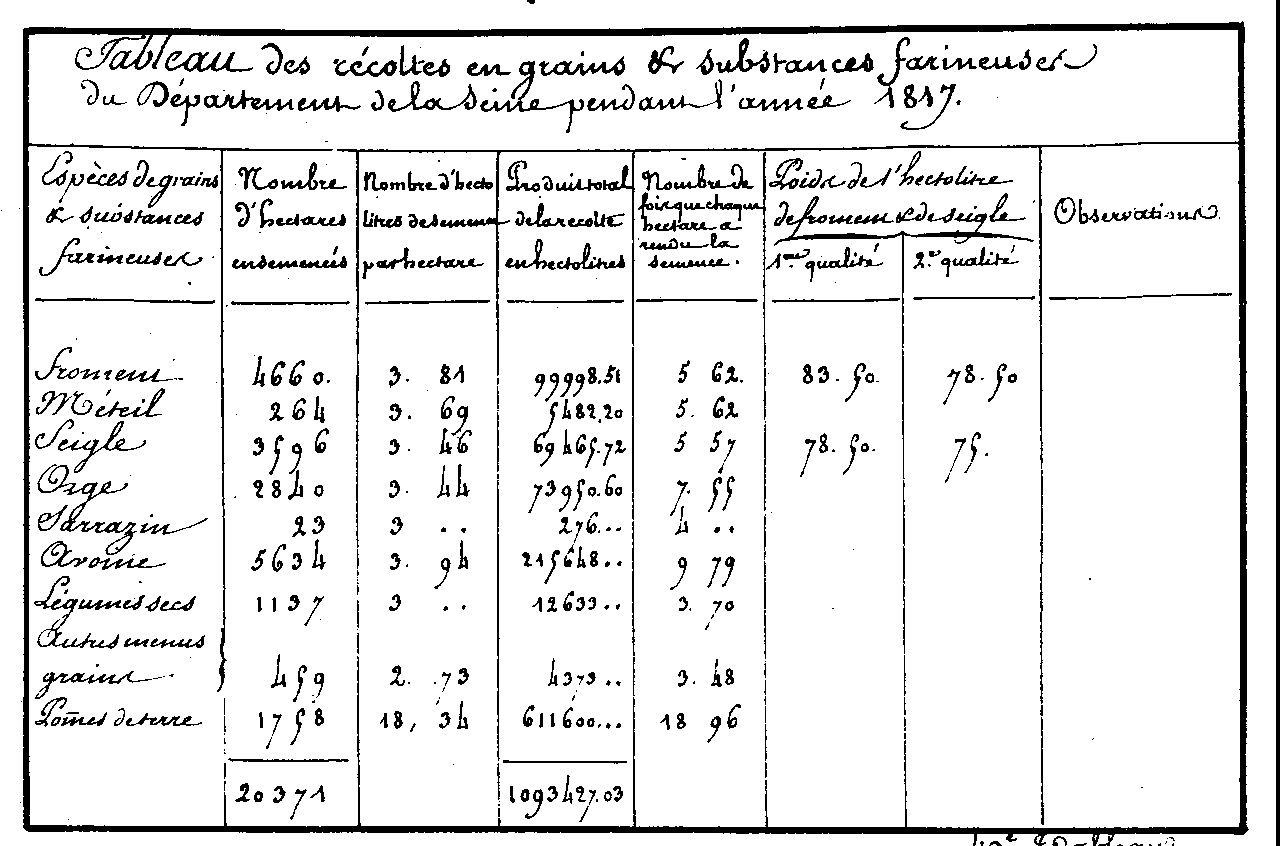 Tableau des récoltes en grains & substances farineuses
du Département de la Seine pendant l'année 1817.
Espèces de grains & substances farineuses
Nombre d'hectares ensemencés
Nombre d'hectolitres de semence par hectare
Produit total de la récolte en hectolitres
Nombre de fois que chaque hectare a rendu la semence.
Poids de l'hectolitre de froment & de seigle
1.re qualité
2.e qualité
Observations
Froment 4660. 3. 81 99998.51 5 62. 83. 50. 78. 50
Méteil 264 3. 69 5482.20 5. 62
Seigle 3596 3. 46 69465.72 5 57 78. 50. 75.
Orge 2840 3. 44 73950.60 7. 55
Sarrazin 23 3 .. 276... 4 ..
Avoine 5634 3. 94 215648.. 9 79
Légumes secs 1137 3 .. 12633.. 3. 70
Autres menus
grains. 459 2. 73 4373.. 3. 48
Pom̄es de terre 1758 18, 34 611600... 18 96
20371 1093427.03